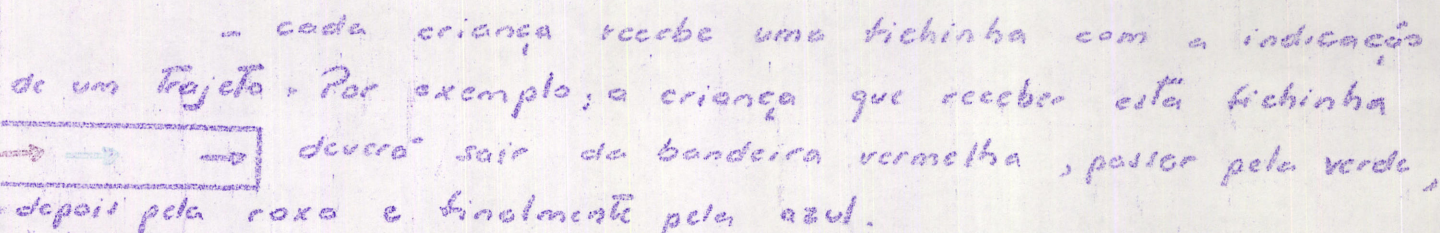 - cada criança recebe uma fichinha com a indicação
de um Trajeto. Por exemplo; a criança que receber esta fichinha
→ → → deverá sair da bandeira vermelha, passar pela verde,
depois pela roxa e finalmente pela azul.